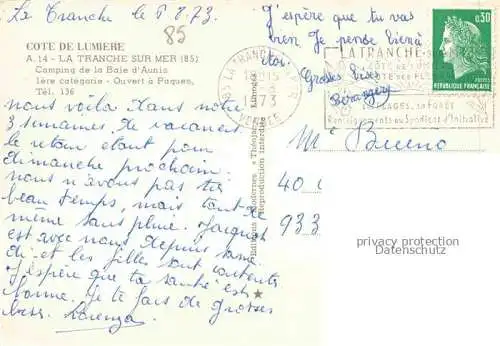 La Tranche le 6 8 73
85
COTE DE LUMIERE
A. 14 - LA TRANCHE SUR MER (85)
Camping de la Baie d'Aunis
1ère catégorie - Ouvert à Paques,
Tél. 136
nous voilà dans notre
3 semaines de vacances
le retour étant pour
dimanche prochain.
nous n'avons pas très
beau temps, mais tout de
même sans pluie. Jacques
est avec nous depuis same
di et les filles sont contentes
J'espère que ta santé est
bonne. Je te fais de grosses
bises. Lorenza.
J'espère que tu vas
bien Je pense bien à
toi.
Grosses bises
Bérangery
Editions Modernes "Théojac" Limoges
Reproduction interdite
85 LA TRANCHE S/MER
18H15
1973
VENDEE
LA TRANCHE-S-MER
PLAGES, sa FORÊT
Renseignements au Syndicat d'Initiative
0,30
REPUBLIQUE FRANÇAISE
Me Bueno
40
933
privacy protection
Datenschutz